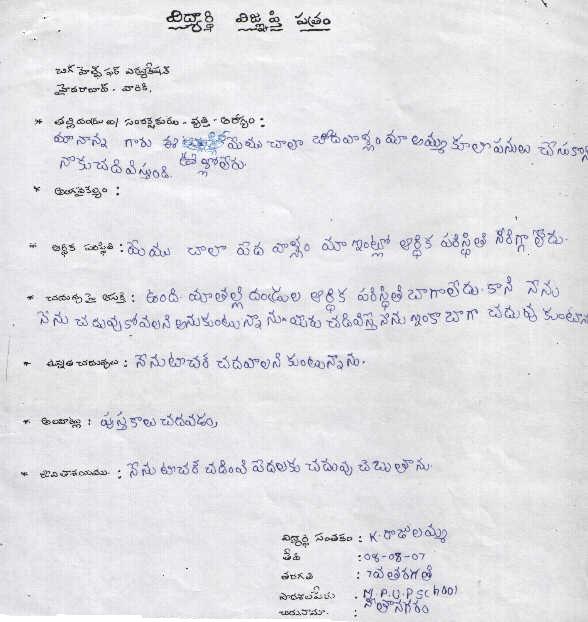 విద్యార్థి విజ్ఞప్తి పత్రం
బిగ్ హెల్ప్ ఫర్ ఎడ్యుకేషన్
హైదరాబాద్ - వారికి,
* తల్లిదండ్రులు/ సంరక్షకుడు - వృత్తి - ఆదాయం :
మా నాన్న గారు ఈ మేము చాలా బీదవాళ్ళం మా అమ్మ కూలి పనులు చేసుకొని
నాకు చదివిస్తుంది. ఊళ్లోలేరు.
* అంగవైకల్యం :
* ఆర్థిక పరిస్థితి : మేము చాలా పేద వాళ్ళం మా ఇంట్లో ఆర్థిక పరిస్థితి సరిగ్గా లేదు.
* చదువు పై ఆసక్తి : ఉంది. మా తల్లి దండ్రుల ఆర్థిక పరిస్థితి బాగాలేదు. కాని నేను
నేను చదువుకోవాలని అనుకుంటున్నాను మీరు చదివిస్తే నేను ఇంకా బాగా చదువు కుంటాను
* ఉన్నత చదువులు : నేను టీచర్ చదవాలని కుంటున్నాను.
* అలవాట్లు : పుస్తకాలు చదవడం,
* జీవితాశయము : నేను టీచర్ చదివి పేదలకు చదువు చెబుతాను.
విద్యార్థి సంతకం : K. రాజులమ్మ
తేది : 08-08-07
తరగతి : 7వ తరగతి
పాఠశాలపేరు : M.P.U.P.School
చిరునామా : సీతానగరం